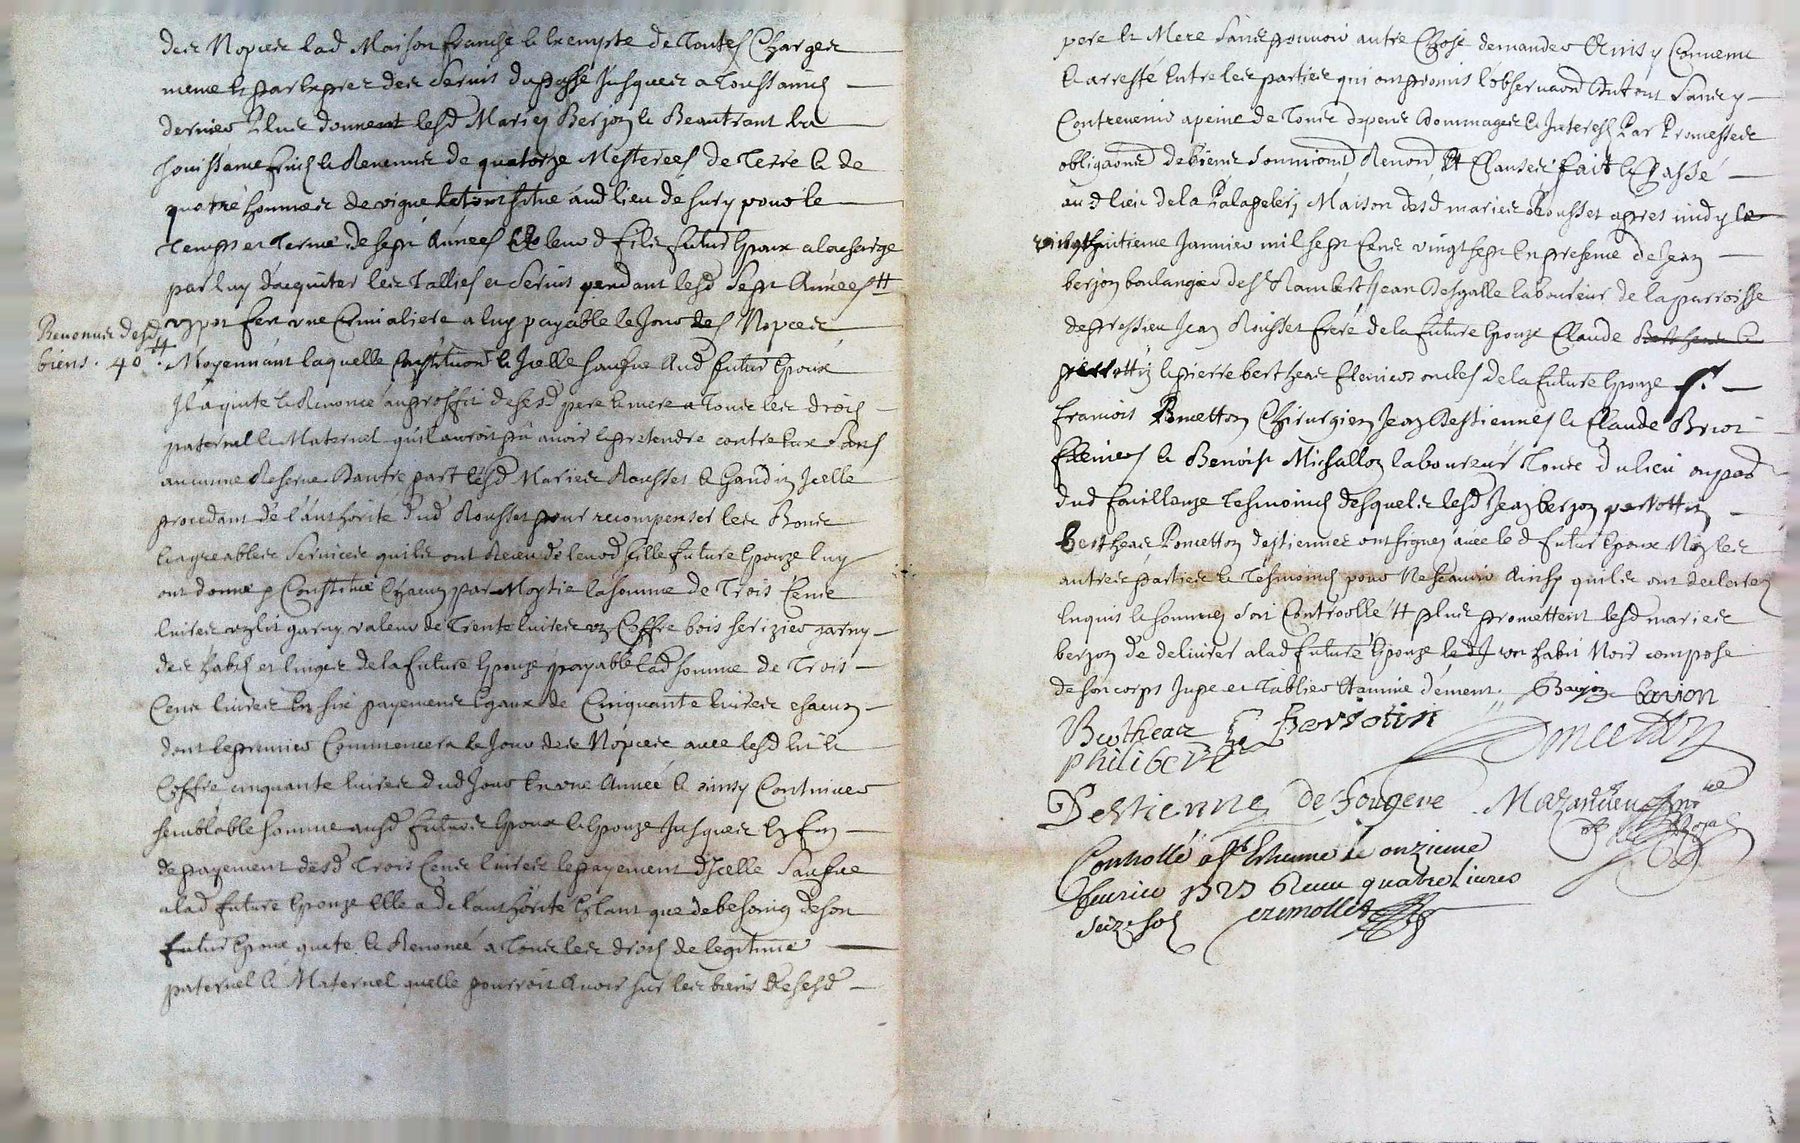 des Nopces lad Maison franche et Exempte de Toutes Charges
mesme et par Exprez des Servis du passé Jusques a Toussainctz
dernier Plus donnent lesd Mariez Berjon et Beautrant la
Jouissance fruictz et Revenus de quatorze Mesterees de Terre et de
quatre hommées de vigne le tout situé aud lieu de Sury pour le
Temps et Terme de sept Années a leurd filz futur Epoux a la charge
par luy d'acquiter les Tallies et Servis pendant lesd Sept Années
un pot fer une Crimaliere a luy payable le Jour des Nopces
Revenus desd
biens . 40 ₶ .
Moyennant laquelle Constitution et Icelle saufve Aud futur Epoux
Il a quité et Renoncé au proffit de sesd pere et mere a Tous les droitz
paternel et Maternel qu'il auroit pu avoir et pretendre contre Eux Sans
aucune Reserve D'autre part lesd Mariez Rousset et Gaudin Icelle
procedant de l'authorité dud Rousset pour recompenser les Bons
et agreables Services qu'ils ont Receu de leurd fille future Epouze luy
ont donné et Constitué Chacun par Moytie la somme de Trois Cens
livres un lit garny valeur de Trente livres un Coffre bois serizier garny
des habitz et linges de la future Epouze payable lad somme de Trois
Cens livres En six payemens Egaux de Cinquante livres chacun
dont le premier Commencera le Jour des Nopces avec lesd lit et
Coffre cinquante livres dud Jour En une Année et ainsy Continuer
semblable somme ausd futurs Epoux et Epouze Jusques En fin
de payement desd Trois Cens livres le payement d'Icelle Saufve
a lad future Epouze Elle a de l'authorité Estant que de besoing de son
futur Epoux quité et Renoncé a Tous les droitz de legitime
paternel et Maternel quelle pourroit Avoir sur les biens de sesd
pere et Mere Sans pouvoir autre Chose demander Ainsy Convenu
et arresté Entre les parties qui ont promis l'observaon du tout Sans y
Contrevenir a peine de Tous depens dommages et Interestz Par Promesses
obligaons de biens soumions Renond Et Clauses fait et Passé
au d lieu de la Maison desd mariez Rousset apres midy le
vingthuitieme Janvier mil sept Cens vingt sept En presence de Jean
berjon boulangier de St Rambert Jean Desgalle laboureur de la parroisse
de pressieu Jean Rousset frere de la future Epouze Claude
perrottin et pierre bertheas Elenier oncles de la future Epouze
francois Pometton Chirurgien Jean Destiennes et Claude
et Benoist Michallon laboureur Tous du lieu
dud Tesmoins desquels lesd Jean berjon perrottin
bertheas Pometton destiennes ont signez avec led futur Epoux Non les
autres parties et Tesmoins pour Ne Scavoir Ainsy qu'ils ont declarez
Enquis et sommez Soit Controollé Et plus promettent lesd mariez
berjon de delivrer a lad future Epouze un habit Noir composé
de son corps Jupe et Tablier Etamine dement. Barjon berion
Bertheas perrotin
philibert Pometton
Destienne De fougere Mazardieu
Not Royal
Conrollé a St Estienne le onzieme
fevrier 1727 Receu quatre livres
seize sols